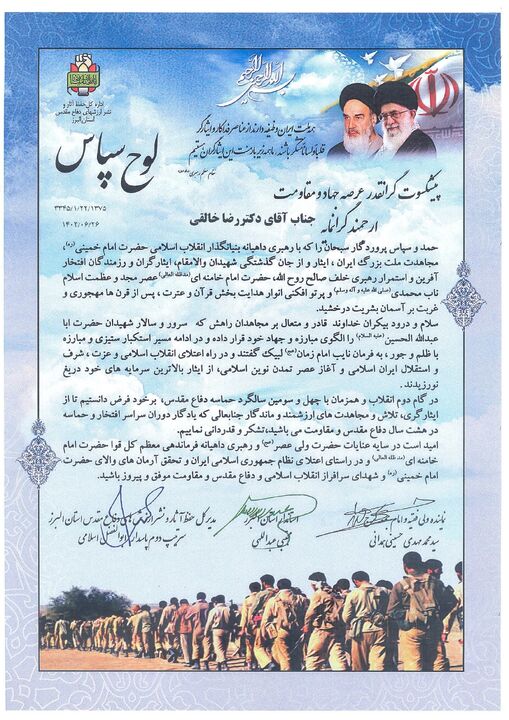 بسم الله الرحمن الرحیم
اداره کل حفظ آثار و
نشر ارزشهای دفاع مقدس
استان البرز
همه ملت ایران وظیفه دارند از عناصر فداکار و ایثارگر
قلباً و لساناً متشکر باشند. ما همه زیر بار منت این ایثارگران هستیم
مقام معظم رهبری
لوح سپاس
۳۳۴۵/۱/۲۲/۱۳۷۵
۱۴۰۲/۰۶/۲۶
پیشکسوت گرانقدر عرصه جهاد و مقاومت
جناب آقای دکتر رضا خالقی
ارجمند گرانمایه
حمد و سپاس پروردگار سبحان را که با رهبری داهیانه بنیانگذار انقلاب اسلامی حضرت امام خمینی (ره)،
مجاهدت ملت بزرگ ایران ، ایثار و از جان گذشتگی شهیدان والامقام، ایثارگران و رزمندگان افتخار
آفرین و استمرار رهبری خلف صالح روح الله، حضرت امام خامنه ای (مدظله العالی) عصر مجد و عظمت اسلام
ناب محمدی (صلی الله علیه و آله وسلم) و پرتو افکنی انوار هدایت بخش قرآن و عترت ، پس از قرن ها مهجوری و
غربت بر آسمان بشریت درخشید.
سلام و درود بیکران خداوند قادر و متعال بر مجاهدان راهش که سرور و سالار شهیدان حضرت ابا
عبدالله الحسین (علیه السلام) را الگوی مبارزه و جهاد خود قرار داده و در ادامه مسیر استکبار ستیزی و مبارزه
با ظلم و جور ، به فرمان نایب امام زمان (عج) لبیک گفتند و در راه اعتلای انقلاب اسلامی و عزت ، شرف
و استقلال ایران اسلامی و آغاز عصر تمدن نوین اسلامی، از ایثار بالاترین سرمایه های خود دریغ
نورزیدند.
در گام دوم انقلاب و همزمان با چهل و سومین سالگرد حماسه دفاع مقدس، برخود فرض دانستیم تا از
ایثارگری، تلاش و مجاهدت های ارزشمند و ماندگار جنابعالی که یادگار دوران سراسر افتخار و حماسه
در هشت سال دفاع مقدس و مقاومت می باشید،تشکر و قدردانی نماییم.
امید است در سایه عنایات حضرت ولی عصر (عج) و رهبری داهیانه فرماندهی معظم کل قوا حضرت امام
خامنه ای (مدظله العالی) و در راستای اعتلای نظام جمهوری اسلامی ایران و تحقق آرمان های والای حضرت
امام خمینی (ره) و شهدای سرافراز انقلاب اسلامی و دفاع مقدس و مقاومت موفق و پیروز باشید.
نماینده ولی فقیه و امام جمعه
سید محمد مهدی حسینی همدانی
استاندار استان البرز
مجتبی عبداللهی
مدیر کل حفظ آثار و نشر ارزش های دفاع مقدس استان البرز
سرتیپ دوم پاسدار ابوالفضل اسلامی